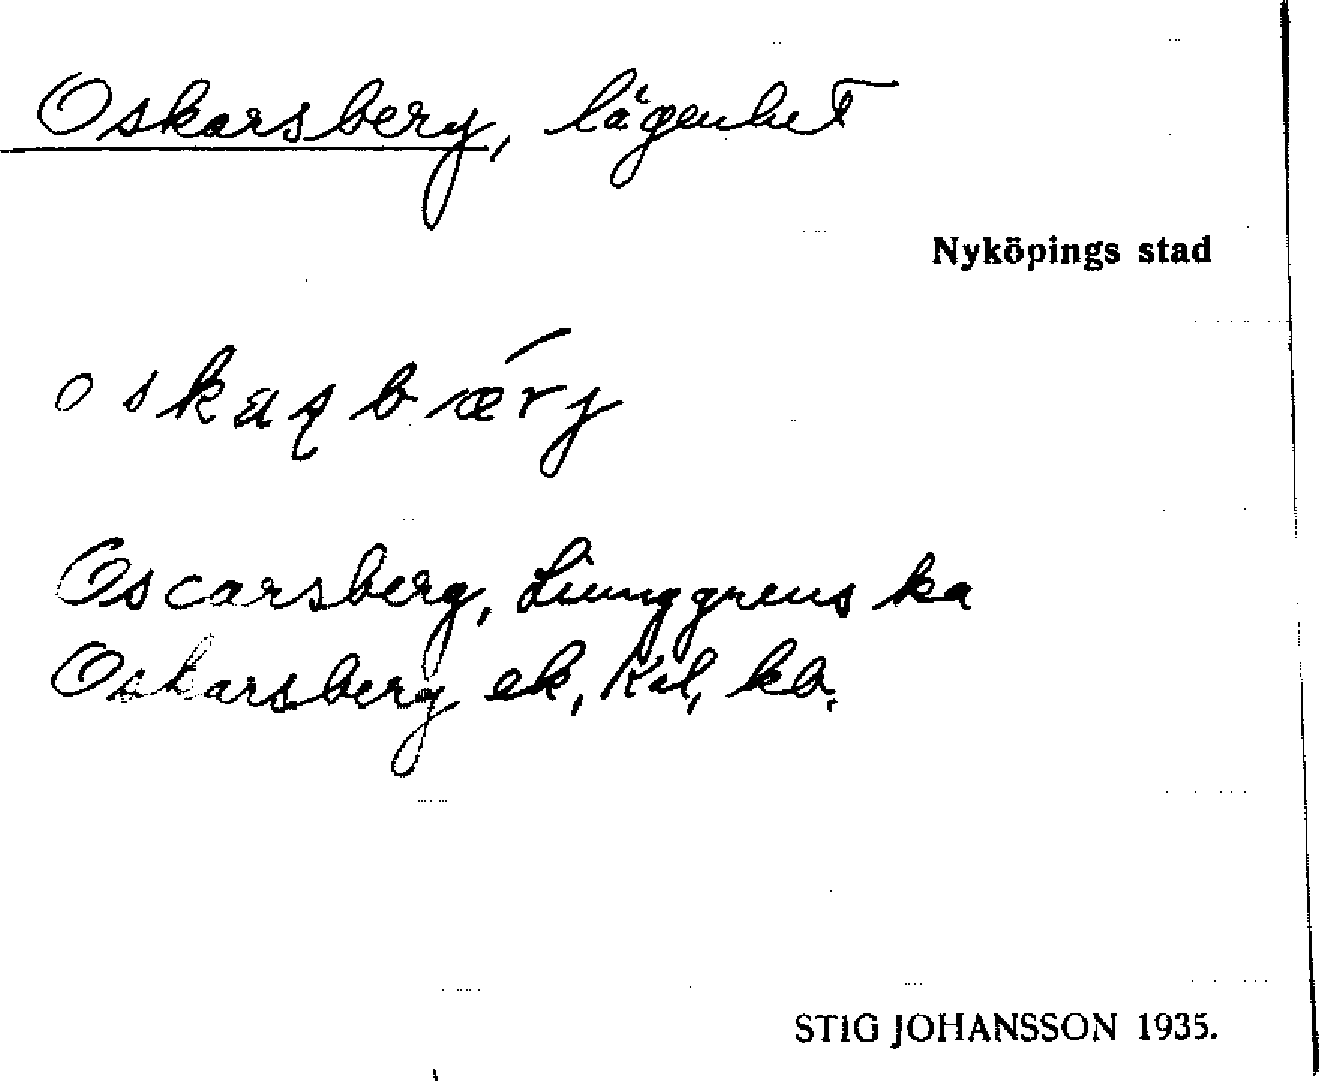 Oskarsberg, lägenhet
Nyköpings stad
Oscarsberg, Liunggrenska
Oskarsberg ek,
STIG JOHANSSON 1935.